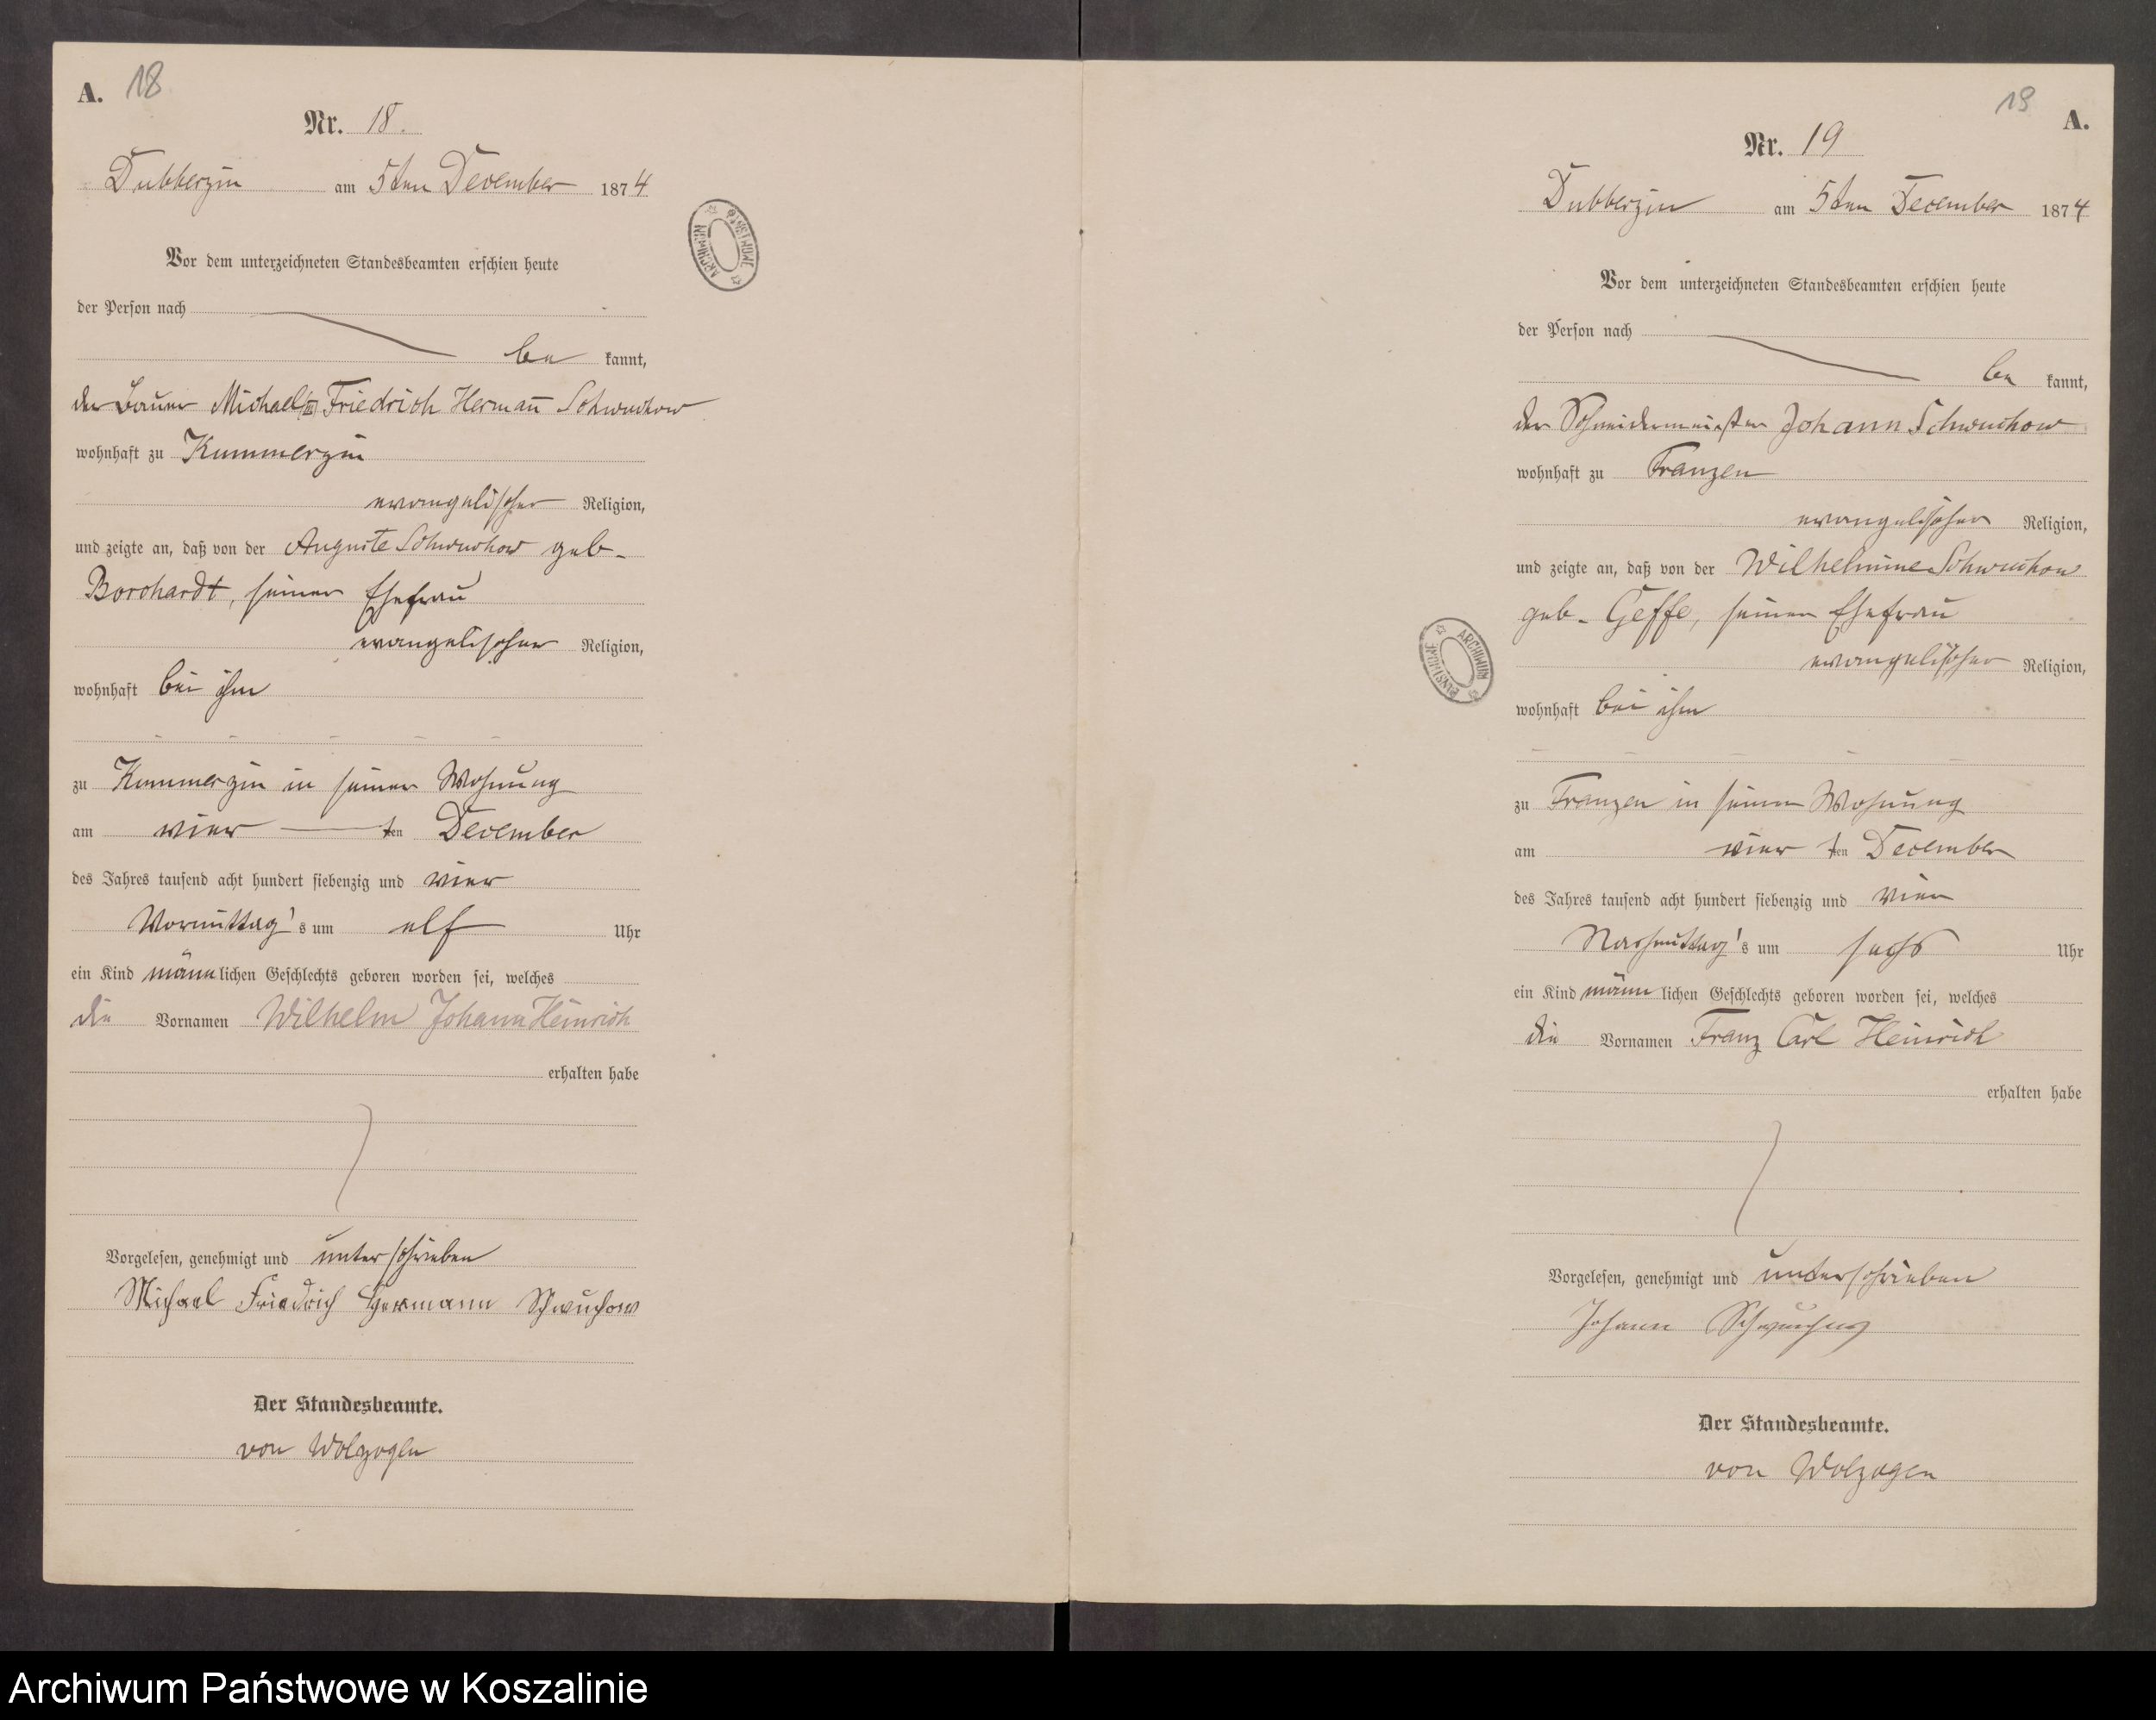 A. 18
Nr. 18.
Dubberzin am 5ten December 1874
Vor dem unterzeichneten Standesbeamten erschien heute
der Person nach
be kannt,
der Bauer Michael III Friedrich Hermañ Schwuchow
wohnhaft zu Kummerzin
evangelischer Religion,
und zeigte an, daß von der Auguste Schwuchow geb.
Borchardt, seiner Ehefrau
evangelischer Religion,
wohnhaft bei ihm
zu Kummerzin in seiner Wohnung
am vier ten December
des Jahres tausend acht hundert siebenzig und vier
Vormittag's um elf Uhr
ein Kind männlichen Geschlechts geboren worden sei, welches
die Vornamen Wilhelm Johann Heinrich
erhalten habe
Vorgelesen, genehmigt und unterschrieben
Michael Friedrich Hermann Schwuchow
Der Standesbeamte.
von Wolzogen
ARCHIWUM PAŃSTWOWE
19 A.
Nr. 19
Dubberzin am 5ten December 1874
Vor dem unterzeichneten Standesbeamten erschien heute
der Person nach
be kannt,
der Schneidermeister Johann Schwuchow
wohnhaft zu Franzen
evangelischer Religion,
und zeigte an, daß von der Wilhelmine Schwuchow
geb. Geffe, seiner Ehefrau
evangelischer Religion,
wohnhaft bei ihm
zu Franzen in seiner Wohnung
am vier ten December
des Jahres tausend acht hundert siebenzig und vier
Nachmittag's um sechs Uhr
ein Kind männlichen Geschlechts geboren worden sei, welches
die Vornamen Franz Carl Heinrich
erhalten habe
Vorgelesen, genehmigt und unterschrieben
Johann Schwuchow
Der Standesbeamte.
von Wolzogen
ARCHIWUM PAŃSTWOWE
Archiwum Państwowe w Koszalinie